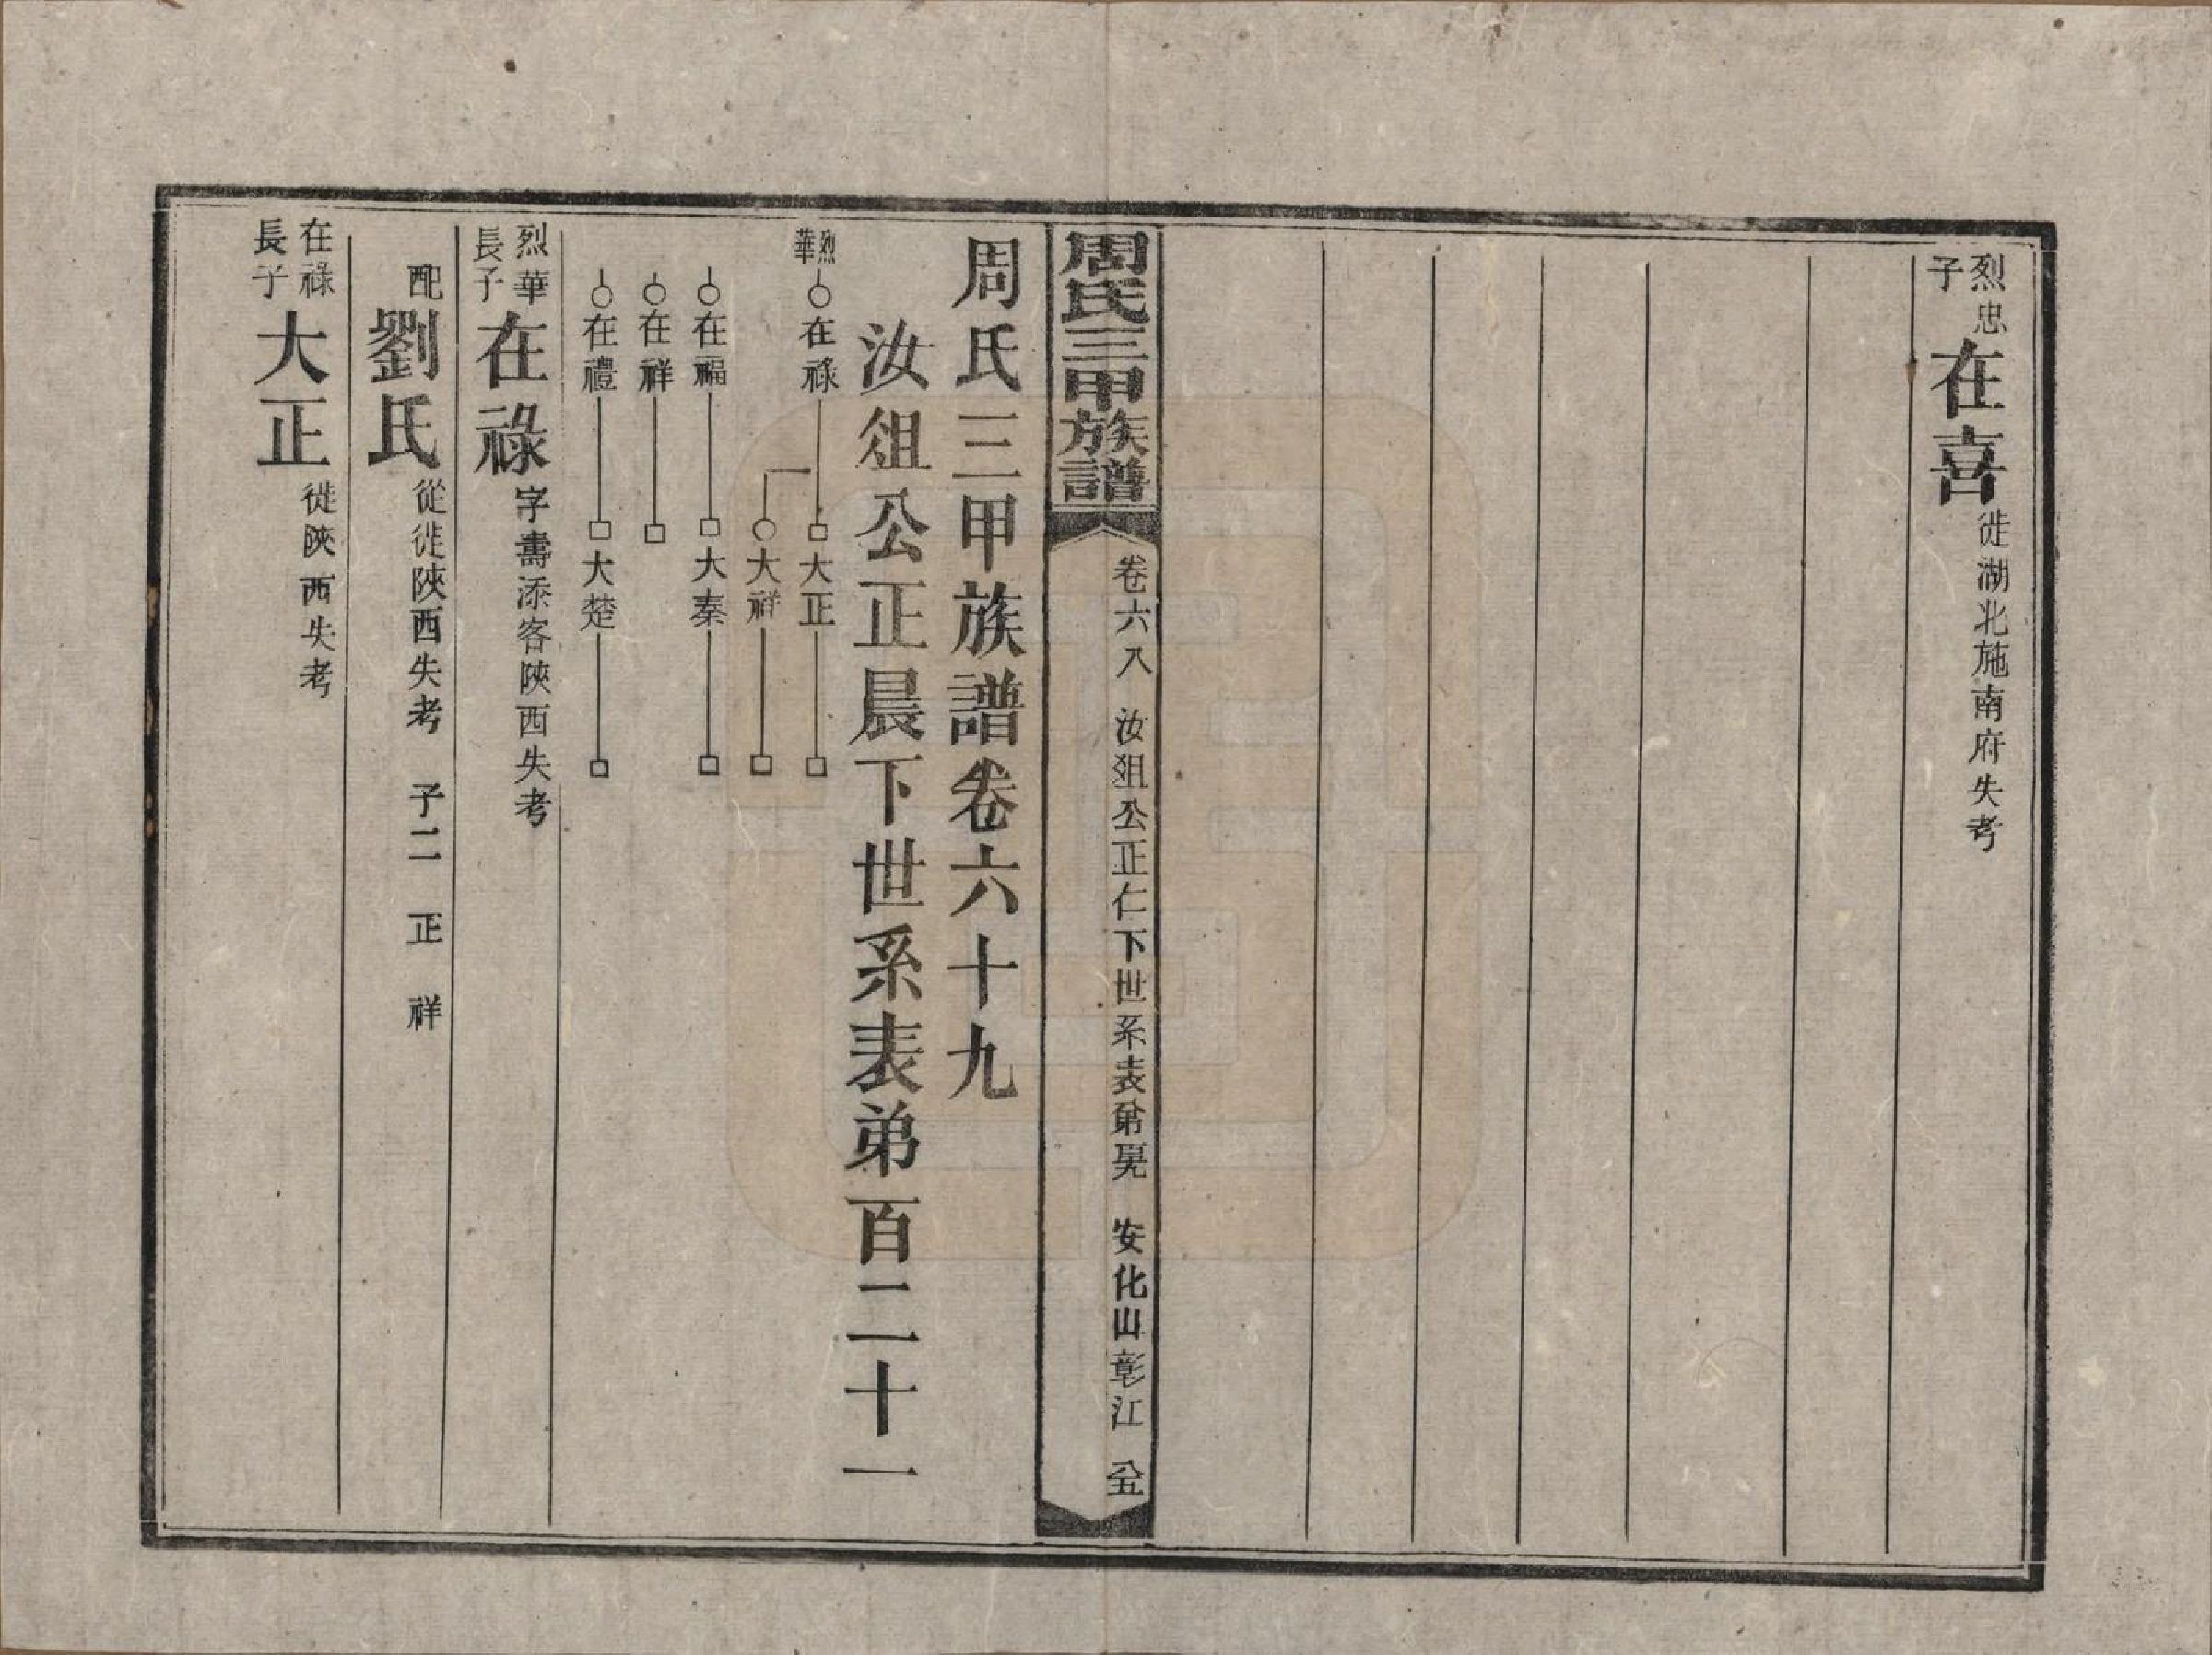 烈忠子在喜徙湖北施南府失考
周氏三甲族譜
卷六八 汝爼公正仁下世系表第 安化山彰江
周氏三甲族譜卷六十九
汝爼公正晨下世系表弟百二十一
烈華 在祿 大正
大祥
在福 大秦
在祥
在禮 大楚
烈華長子在祿字壽添客陝西失考
配劉氏從徙陝西失考 子二 正 祥
在祿長子大正徙陝西失考